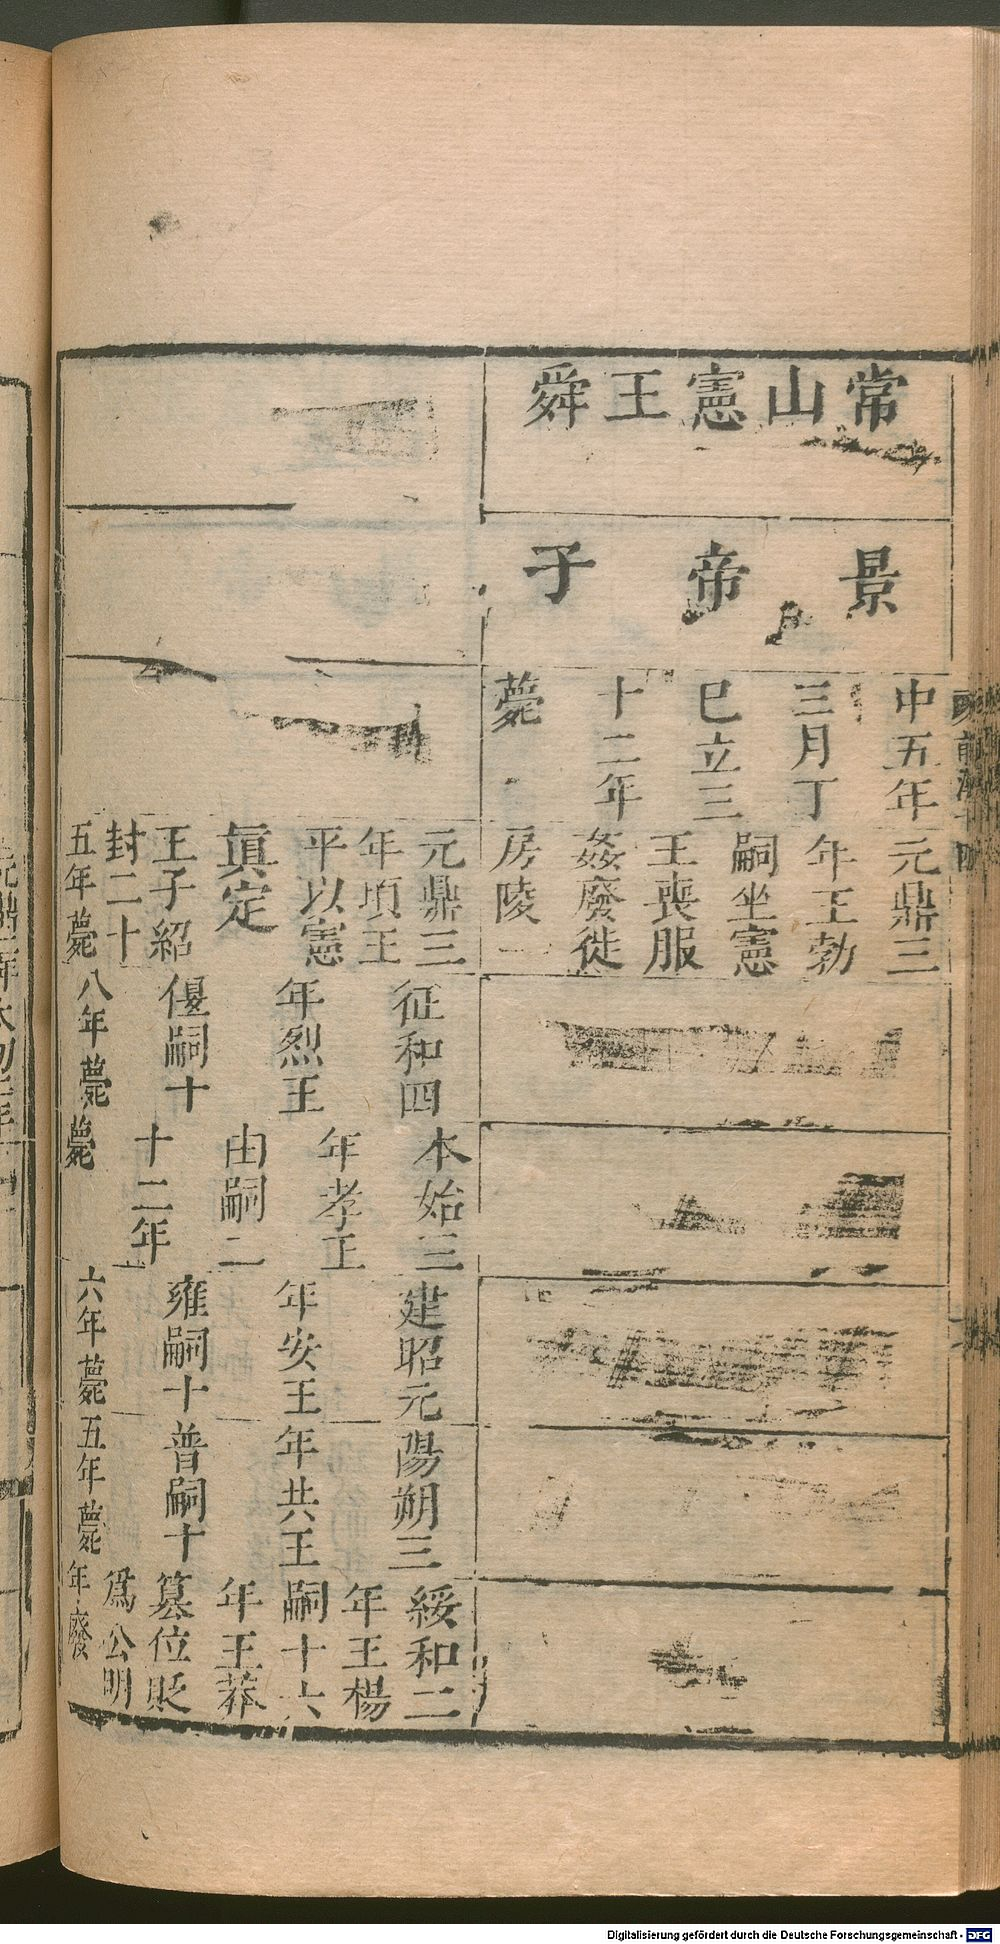 常山憲王舜
景帝子
中五年
三月丁
巳立三
十二年
薨
元鼎三
年王勃
嗣坐憲
王喪服
姦廢徙
房陵
元鼎三
年頃王
平以憲
王子紹
封二十
五年薨
眞定
征和四
年烈王
偃嗣十
八年薨
本始三
年孝王
由嗣二
十二年
薨
建昭元
年安王
雍嗣十
六年薨
陽朔三
年共王
普嗣十
五年薨
綏和二
年王楊
嗣十六
年王莽
篡位貶
爲公明
年廢
Digitalisierung gefördert durch die Deutsche Forschungsgemeinschaft - DFG